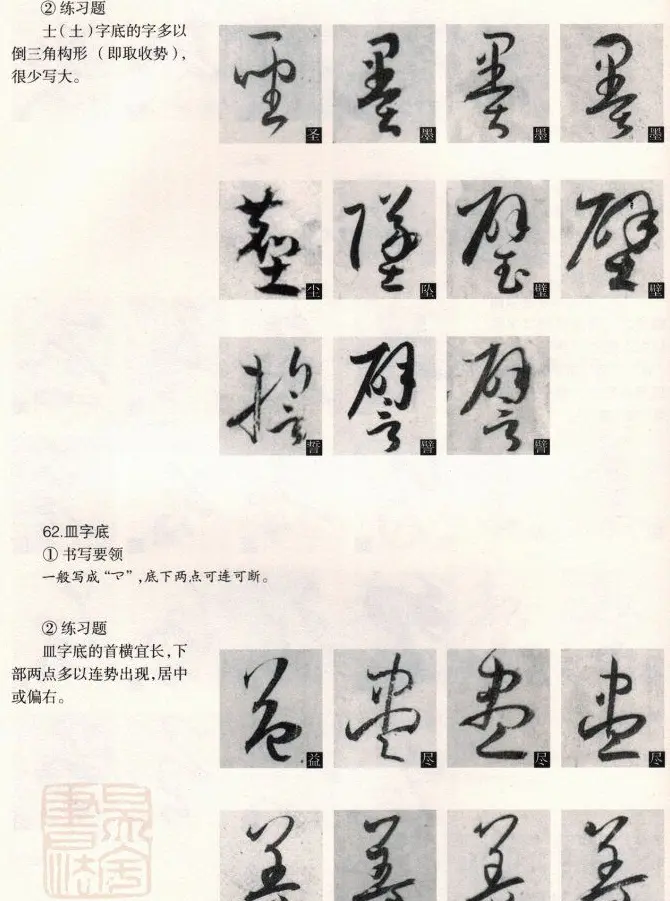 ② 练习题
士(土)字底的字多以
倒三角构形 (即取收势),
很少写大。
圣 墨 墨 墨
尘 坠 璧 壁
誓 譬 譬
62.皿字底
① 书写要领
一般写成“ ”,底下两点可连可断。
② 练习题
皿字底的首横宜长,下
部两点多以连势出现,居中
或偏右。
益 尽 尽 尽